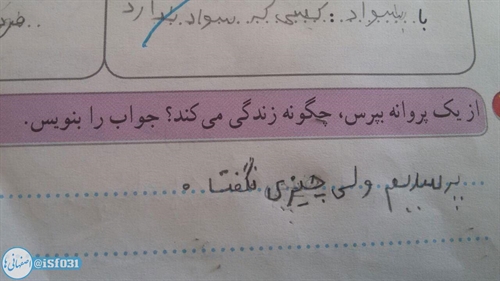 با بیسواد : کسی که سواد ندارد
از یک پروانه بپرس، چگونه زندگی می‌کند؟ جواب را بنویس.
پرسیدم ولی چیزی نگفت.
اصفهانی‌ها
@iSf031